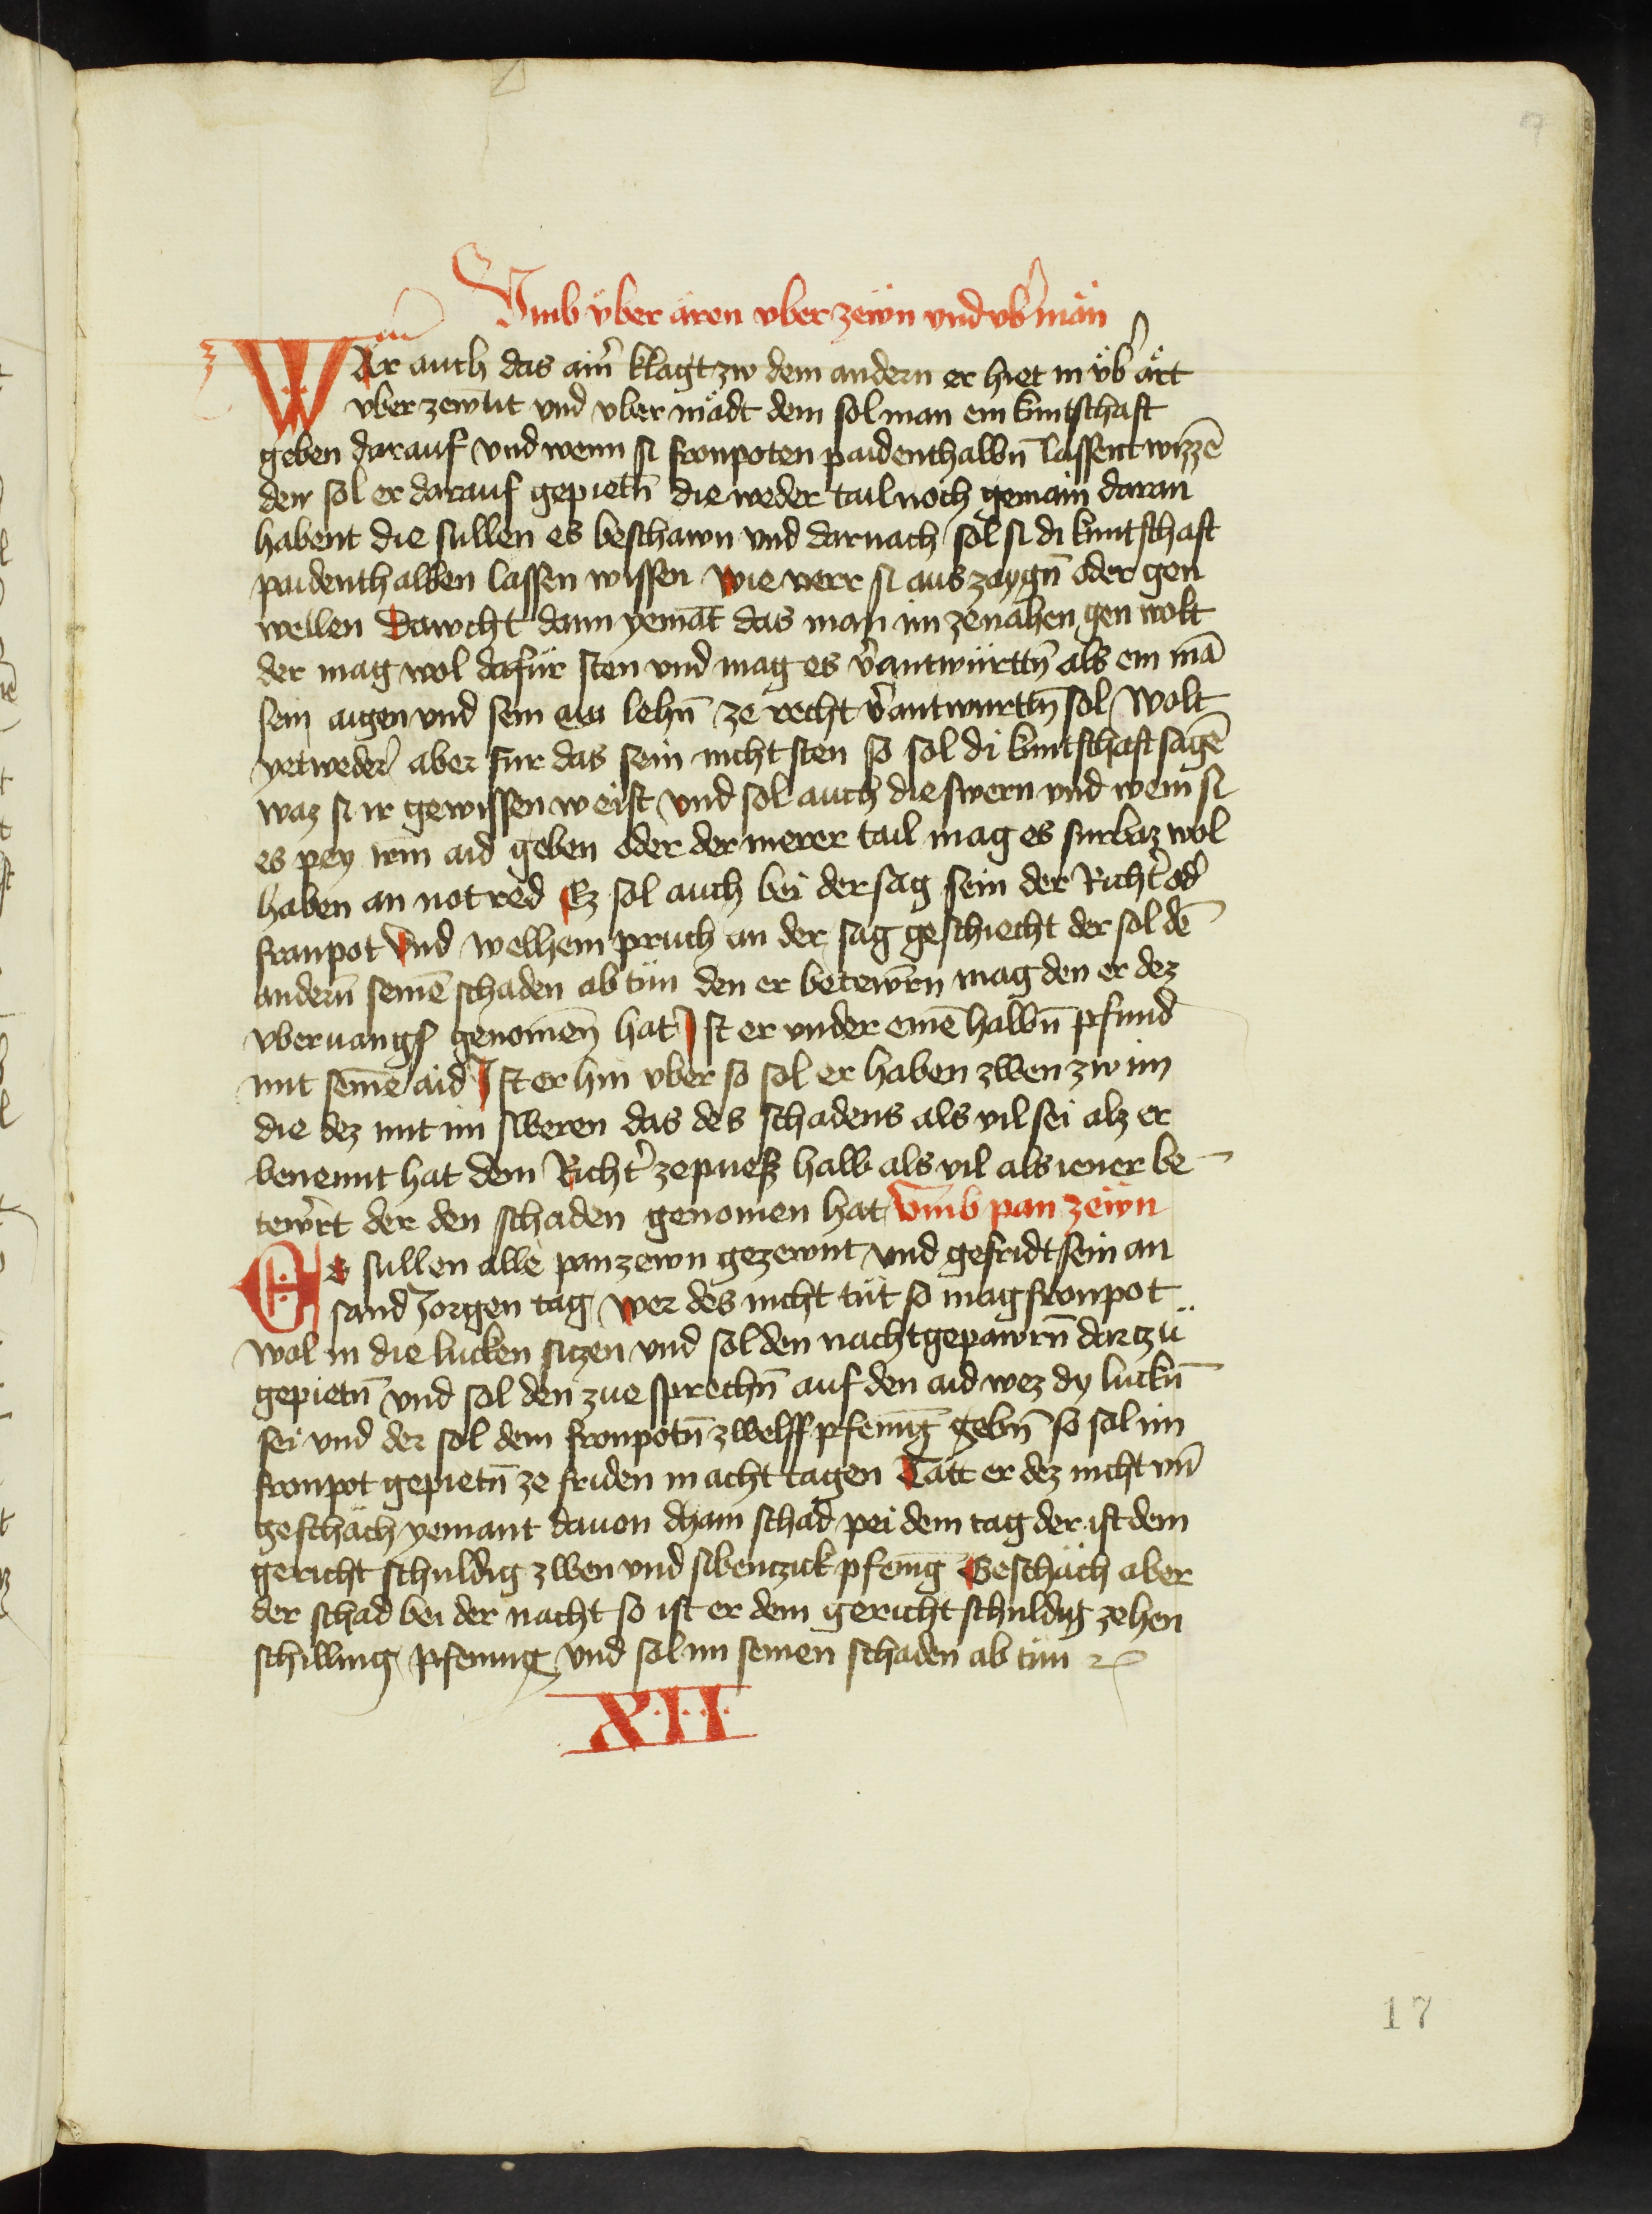 Vmb v̈ber ären vber zewn vnd vb̾män
Wär auch das ain̾ klagt zw dem andern er hiet in v̈b̾ ärt
vber zewnt vnd vber mädt dem sol man ein kuntschaft
geben darauf vnd wenn si fronpoten paidenthalbn̄ lassent wizzē
den sol er darauf gepietn̄ die weder tail noch gemain daran
habent die sullen es beschawn vnd darnach sol si di kuntschaft
paidenthalben lassen wissen wie verr si aus zaygn̄ oder gen
wellen Dawcht dann yemāt das man im ze nahen gen wolt
der mag wol dafür sten vnd mag es v̾antwürttn̄ als ein mā
sein aigen vnd sein lehn̄ ze recht v̾antwurttn̄ sol Wolt
yetweder̾ aber fur das sein nicht sten so sol di kuntschaft sagē
waz si ir gewissen weist vnd sol auch die swern vnd wem si
es pey irm aid geben oder der merer tail mag es furbaz wol
haben an notred Ez sol auch bei der sag sein der Richt̾ od̾
fronpot Vnd welhem pruch an der sag geschiecht der sol dē
andern̄ seinē schaden ab tün den er betewrn̄ mag den er dez
vberuangs genomen̄ hat Ist er vnder einē halbn̄ pfund
mit seinē aid Ist er hin vber so sol er haben zwen zw im
die dez mit im sweren das des schadens als vil sei alz er
benennt hat dem Richt̾ ze puesz halb als vil als iener be
tew̾rt der den schaden genomen hat Vmb pan zewn
Es sullen alle pan zewn gezewnt vnd gefridt sein an
sand Jorgen tag wer des nicht tüt so mag fronpot
wol in die lucken sitzen vnd sol den nachtgepawrn̄ dartzü
gepietn̄ vnd sol den zue sprechn̄ auf den aid wez dy luckn̄
sei vnd der sol dem fronpotn̄ zwelff pfenīg gebn̄ so sol im
fronpot gepietn̄ ze friden in acht tagen Tätt er dez nicht vn̄
geschäch yemant dauon dhain schad pei dem tag der ist dem
gericht schuldig zwen vnd sibentzick pfenīg Geschäch aber
der schad bei der nacht so ist er dem gericht schuldig zehen
schilling pfennig vnd sol im seinen schaden ab tün
XII
17